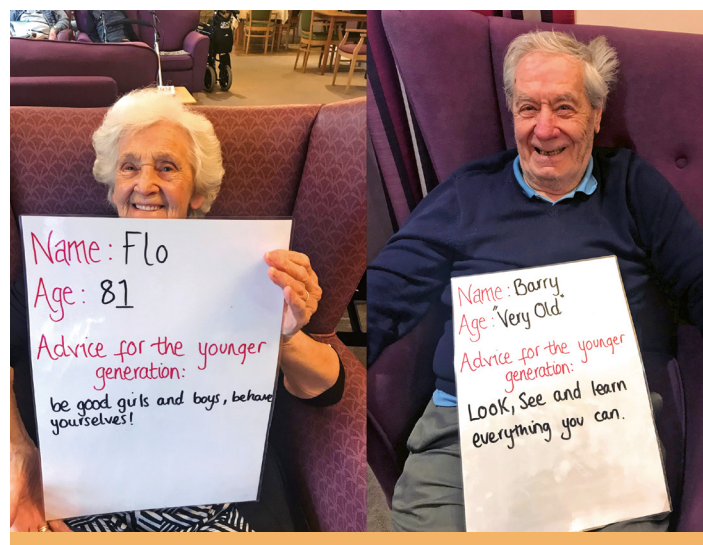 Name: Flo
Age: 81
Advice for the younger
generation:
be good girls and boys, behave
yourselves!
Name: Barry
Age: "Very Old"
Advice for the younger
generation:
Look, See and learn
everything you can.